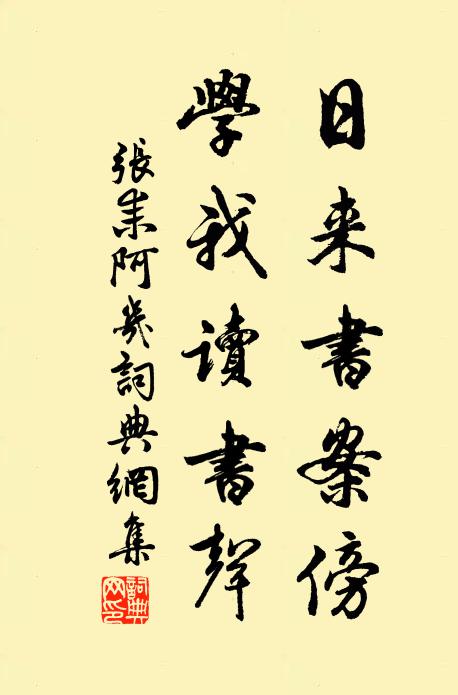 日来書案傍
學我讀書聲
張耒阿幾詞典網集
詞典網印